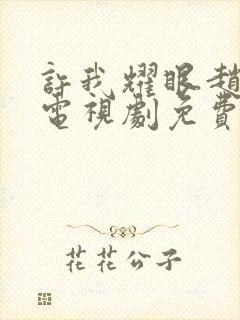 許我耀眼趙
電視劇免費
花花公子